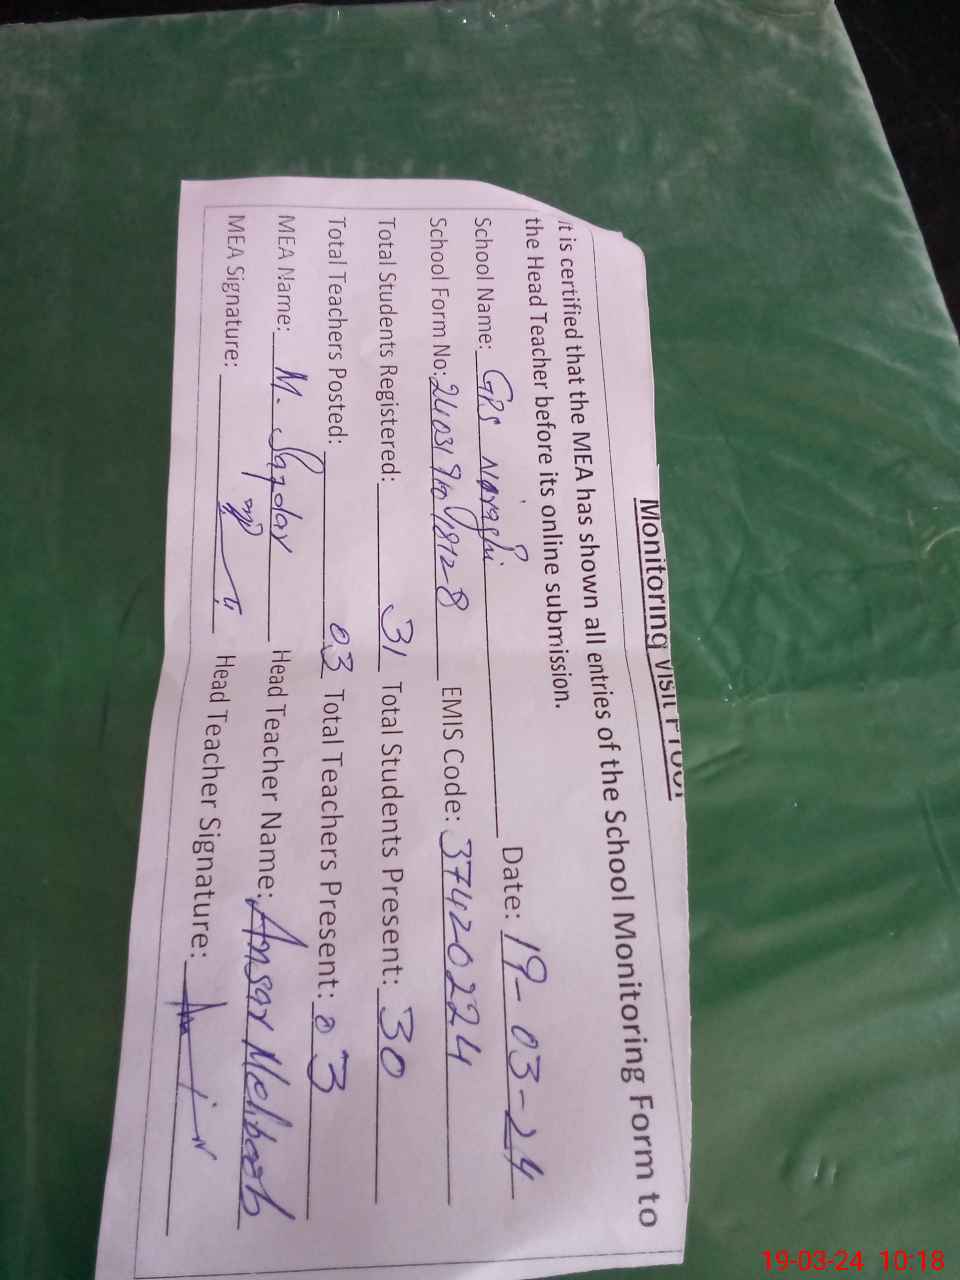 Monitoring Visit Proof
It is certified that the MEA has shown all entries of the School Monitoring Form to
the Head Teacher before its online submission.
School Name: GPS Narashi Date: 19-03-24
School Form No: EMIS Code: 37420224
Total Students Registered: 31 Total Students Present: 30
Total Teachers Posted: 03 Total Teachers Present: 03
MEA Name: M. Safdar Head Teacher Name: Ansar Mehboob
MEA Signature: Head Teacher Signature:
19-03-24 10:18